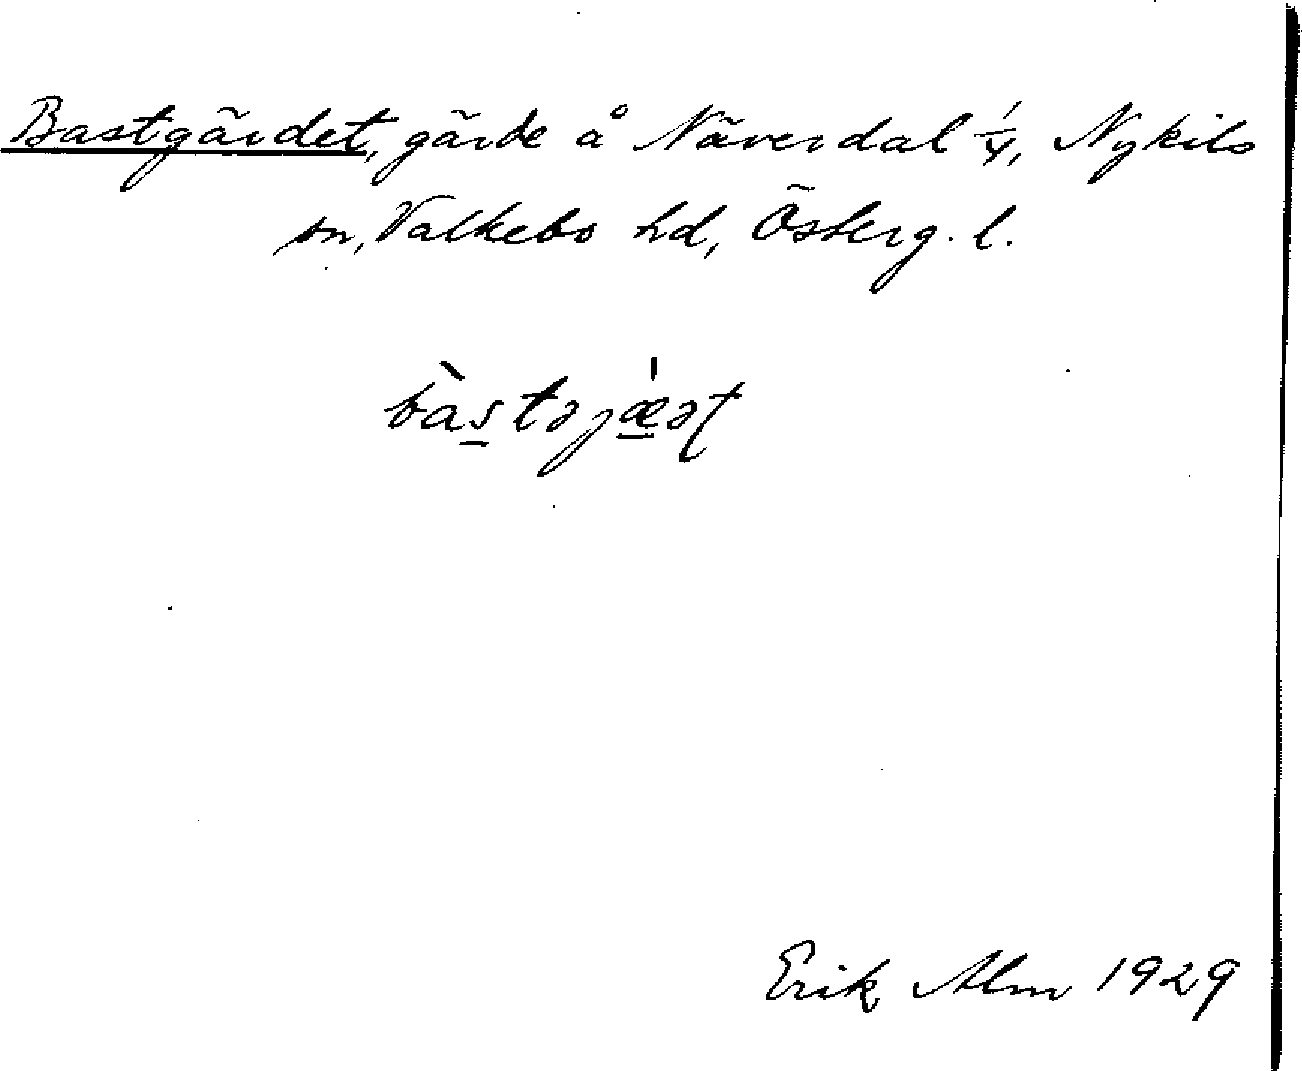 Bastgärdet, gärde å Näverdal 1/4, Nykils
sn, Valkebo hd, Österg. l.
bàstəjǽət
Erik Alm 1929